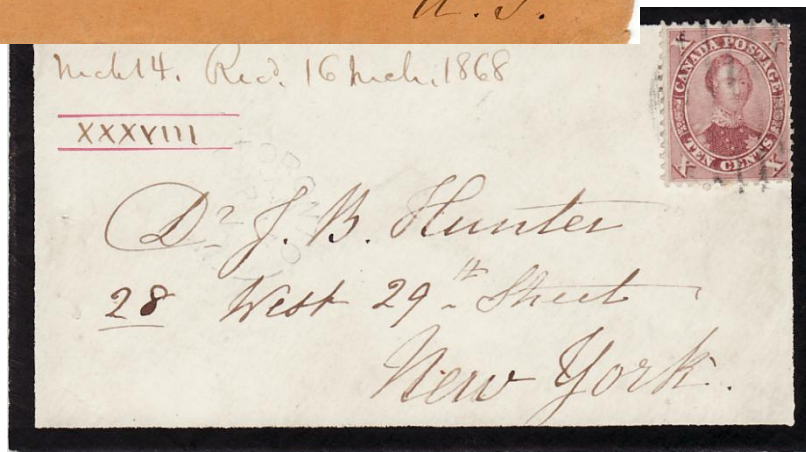 U.S.
Mch 14. Recd. 16 Mch. 1868
XXXVIII
CANADA POSTAGE
TEN CENTS
X X
TORONTO
Dr J. B. Hunter
28 West 29th Street
New York.